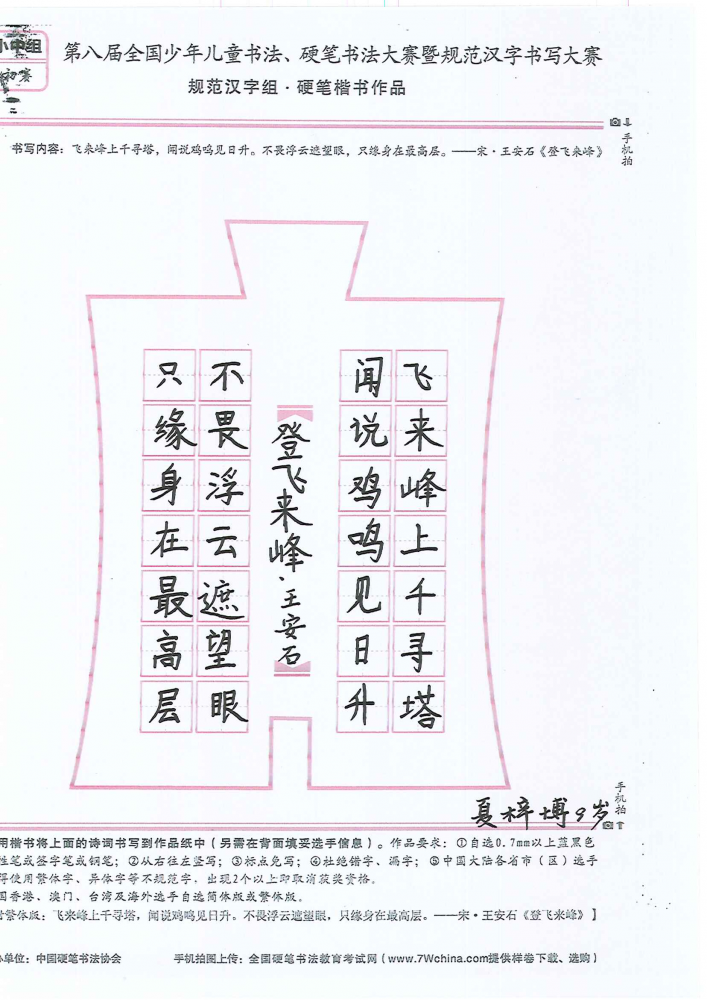 小中组
初赛
第八届全国少年儿童书法、硬笔书法大赛暨规范汉字书写大赛
规范汉字组·硬笔楷书作品
手机拍
书写内容：飞来峰上千寻塔，闻说鸡鸣见日升。不畏浮云遮望眼，只缘身在最高层。——宋·王安石《登飞来峰》
飞来峰上千寻塔
闻说鸡鸣见日升
登飞来峰·王安石
不畏浮云遮望眼
只缘身在最高层
手机拍
夏梓博9岁
用楷书将上面的诗词书写到作品纸中（另需在背面填妥选手信息）。作品要求：①自选0.7mm以上蓝黑色
性笔或签字笔或钢笔；②从右往左竖写；③标点免写；④杜绝错字、漏字；⑤中国大陆各省市（区）选手
得使用繁体字、异体字等不规范字，出现2个以上即取消获奖资格。
国香港、澳门、台湾及海外选手自选简体版或繁体版。
繁体版：飞来峰上千寻塔，闻说鸡鸣见日升。不畏浮云遮望眼，只缘身在最高层。——宋·王安石《登飞来峰》】
办单位：中国硬笔书法协会
手机拍图上传：全国硬笔书法教育考试网（www.7Wchina.com提供样卷下载、选购）